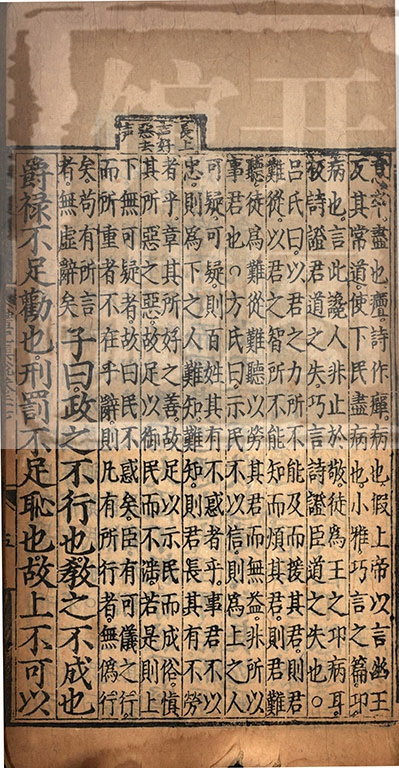 長上
声好
惡去
声
卒盡也癉詩作瘅病也假上帝以言幽王
反其常道使下民盡病也小雅巧言之篇卭
病也言此讒人非止於敬徒爲王之卭病耳
板詩證君道之失巧言詩證臣道之失也○
吕氏曰以君之力所不能及而援其君則君
難從以君之智所不能知而煩其君則君難
聽徒爲難從難聽以勞其君而無益非所以
事君也○方氏曰示民不以信則爲上之人
可疑可疑則百姓其有不惑者乎事君不以
忠則爲下之人難知難知則君長其有不勞
者乎章其所好之善故足以示民而成俗慎
其所惡之惡故足以御民而不淫若是則上
下無可疑者故曰民不惑矣臣有可儀之行
而所重者不在乎辭則凡有所行者無僞行
矣苟有所言
者無虛辭矣
子曰政之不行也敎之不成也
爵禄不足勸也刑罰不足恥也故上不可以